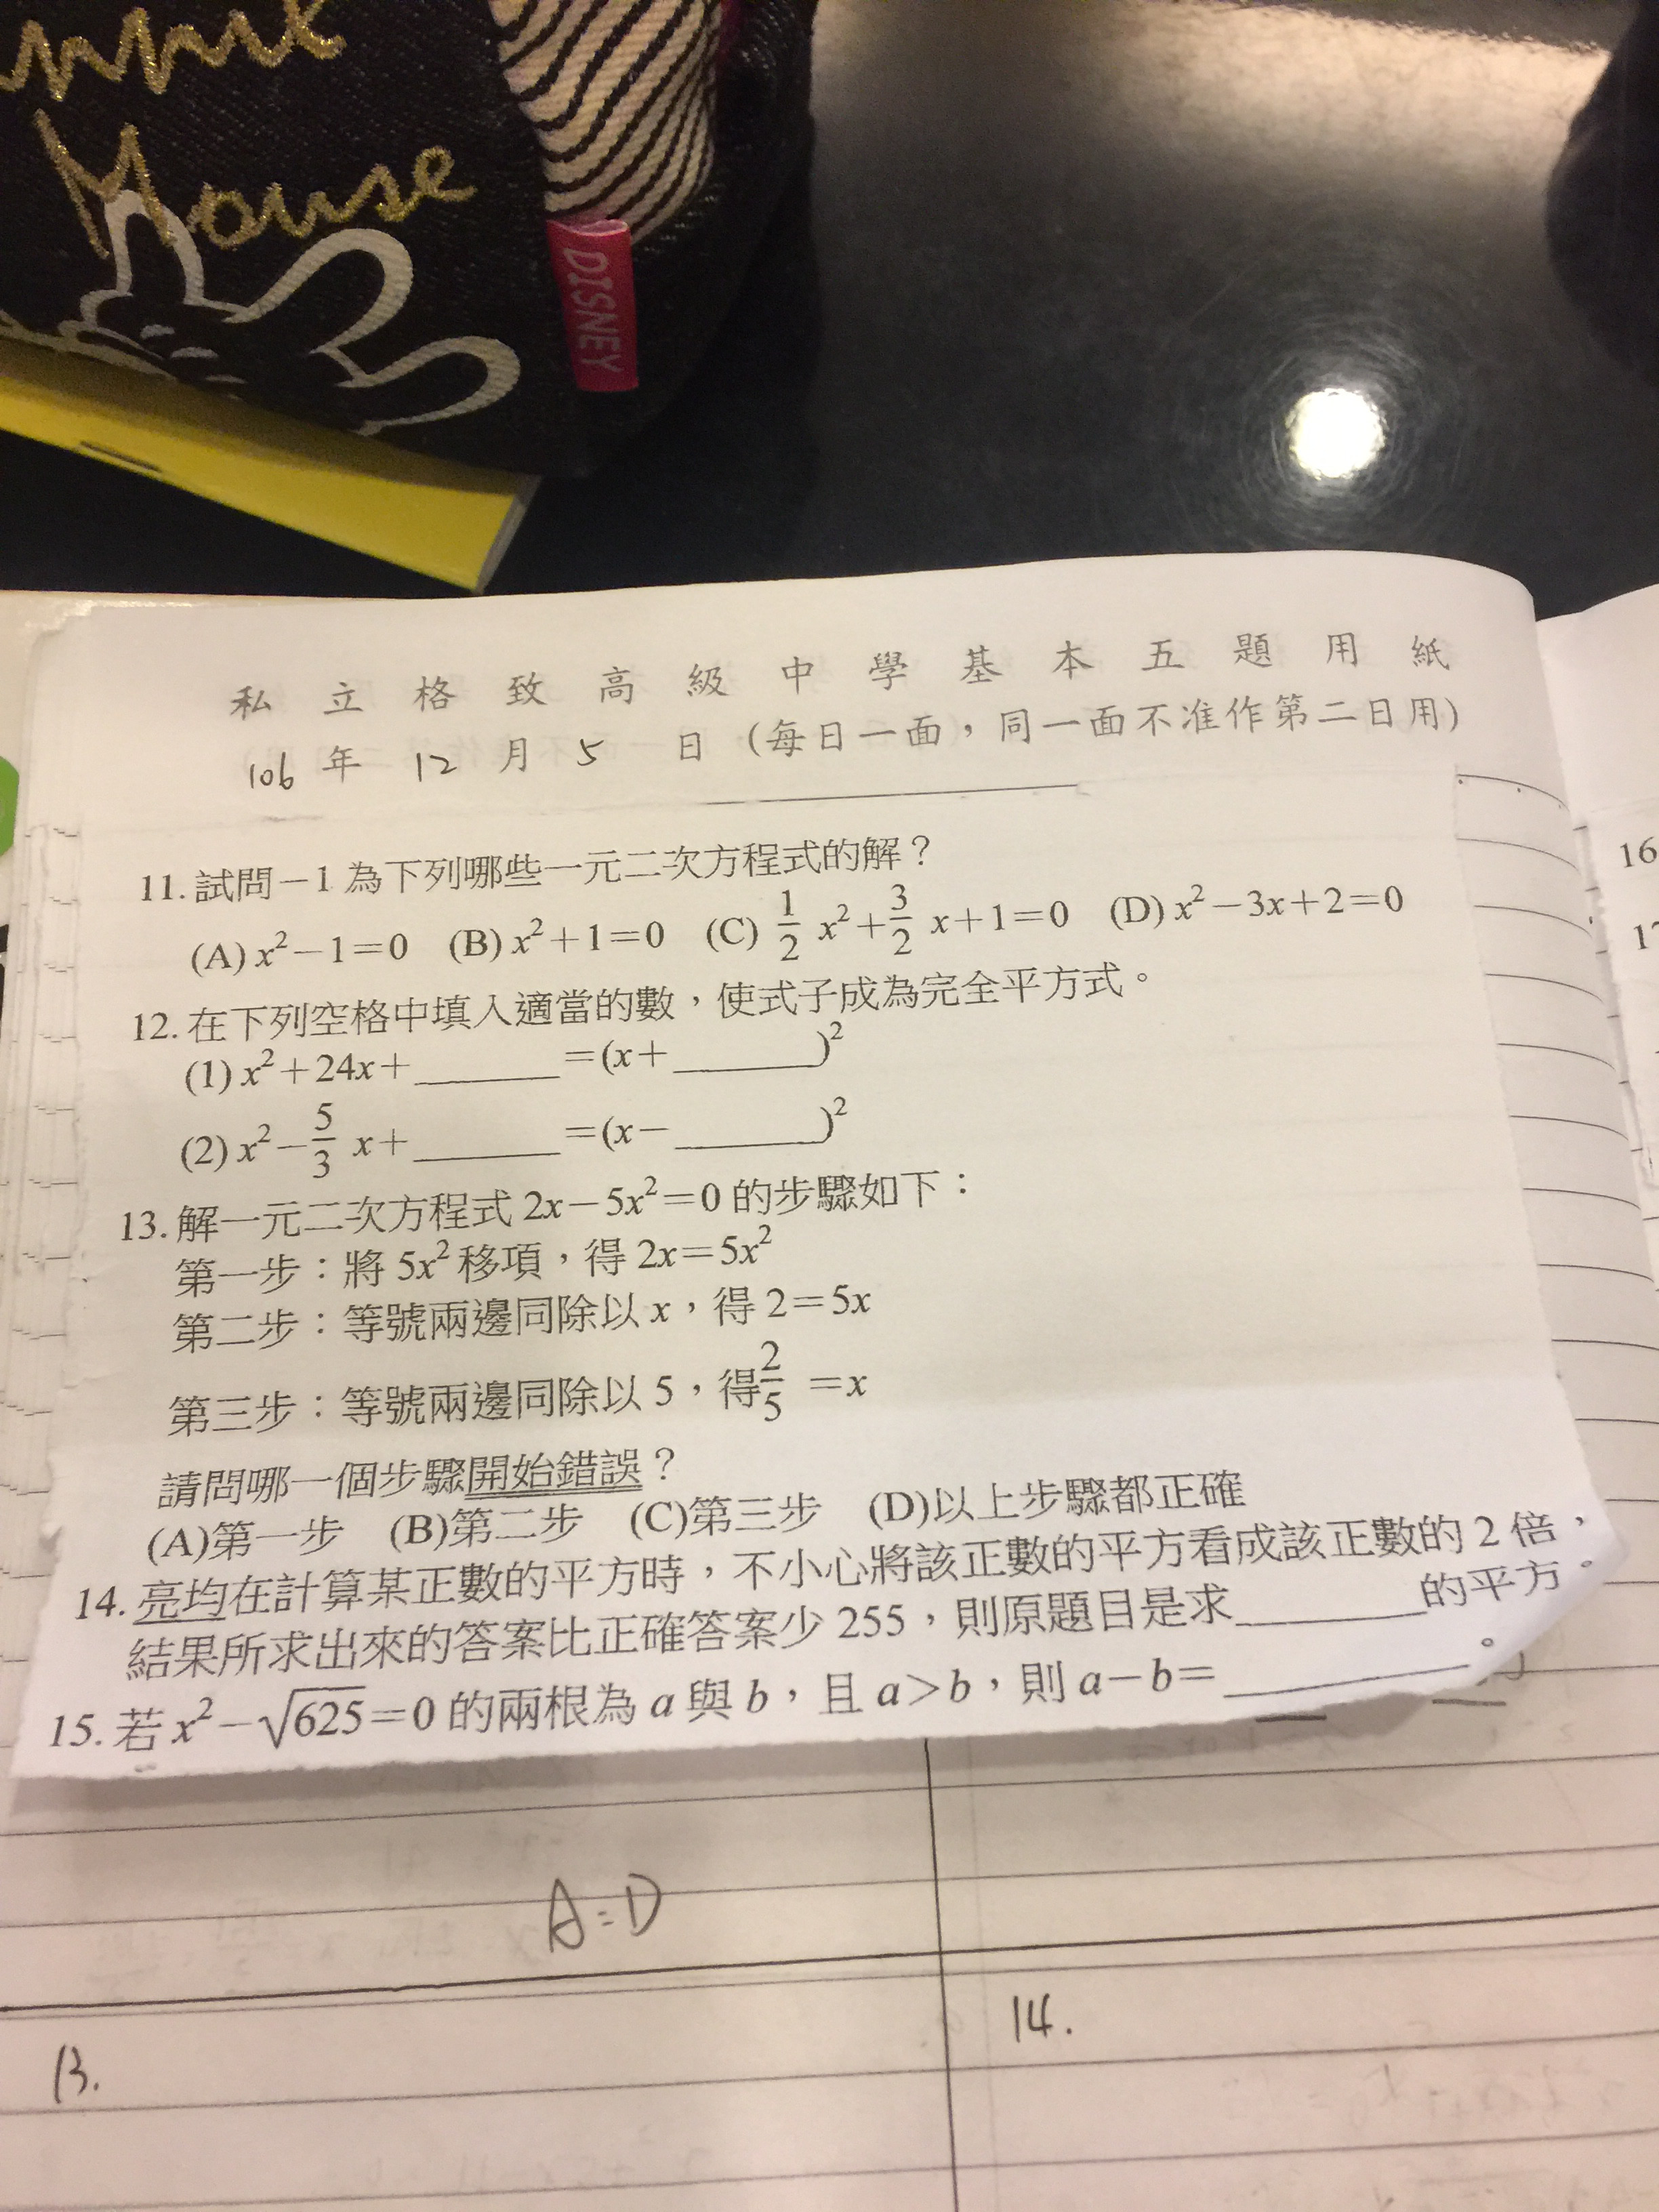 Mouse
DISNEY
私立格致高級中學基本五題用紙
106年12月5日(每日一面,同一面不准作第二日用)
11.試問-1為下列哪些一元二次方程式的解?
(A)x²-1=0 (B)x²+1=0 (C)1/2 x²+3/2 x+1=0 (D)x²-3x+2=0
12.在下列空格中填入適當的數,使式子成為完全平方式。
(1)x²+24x+______=(x+______)²
(2)x²-5/3 x+______=(x-______)²
13.解一元二次方程式2x-5x²=0的步驟如下:
第一步:將5x²移項,得2x=5x²
第二步:等號兩邊同除以x,得2=5x
第三步:等號兩邊同除以5,得2/5=x
請問哪一個步驟開始錯誤?
(A)第一步 (B)第二步 (C)第三步 (D)以上步驟都正確
14.亮均在計算某正數的平方時,不小心將該正數的平方看成該正數的2倍,
結果所求出來的答案比正確答案少255,則原題目是求______的平方。
15.若x²-√625=0的兩根為a與b,且a>b,則a-b=______。
16
A=D
13.
14.